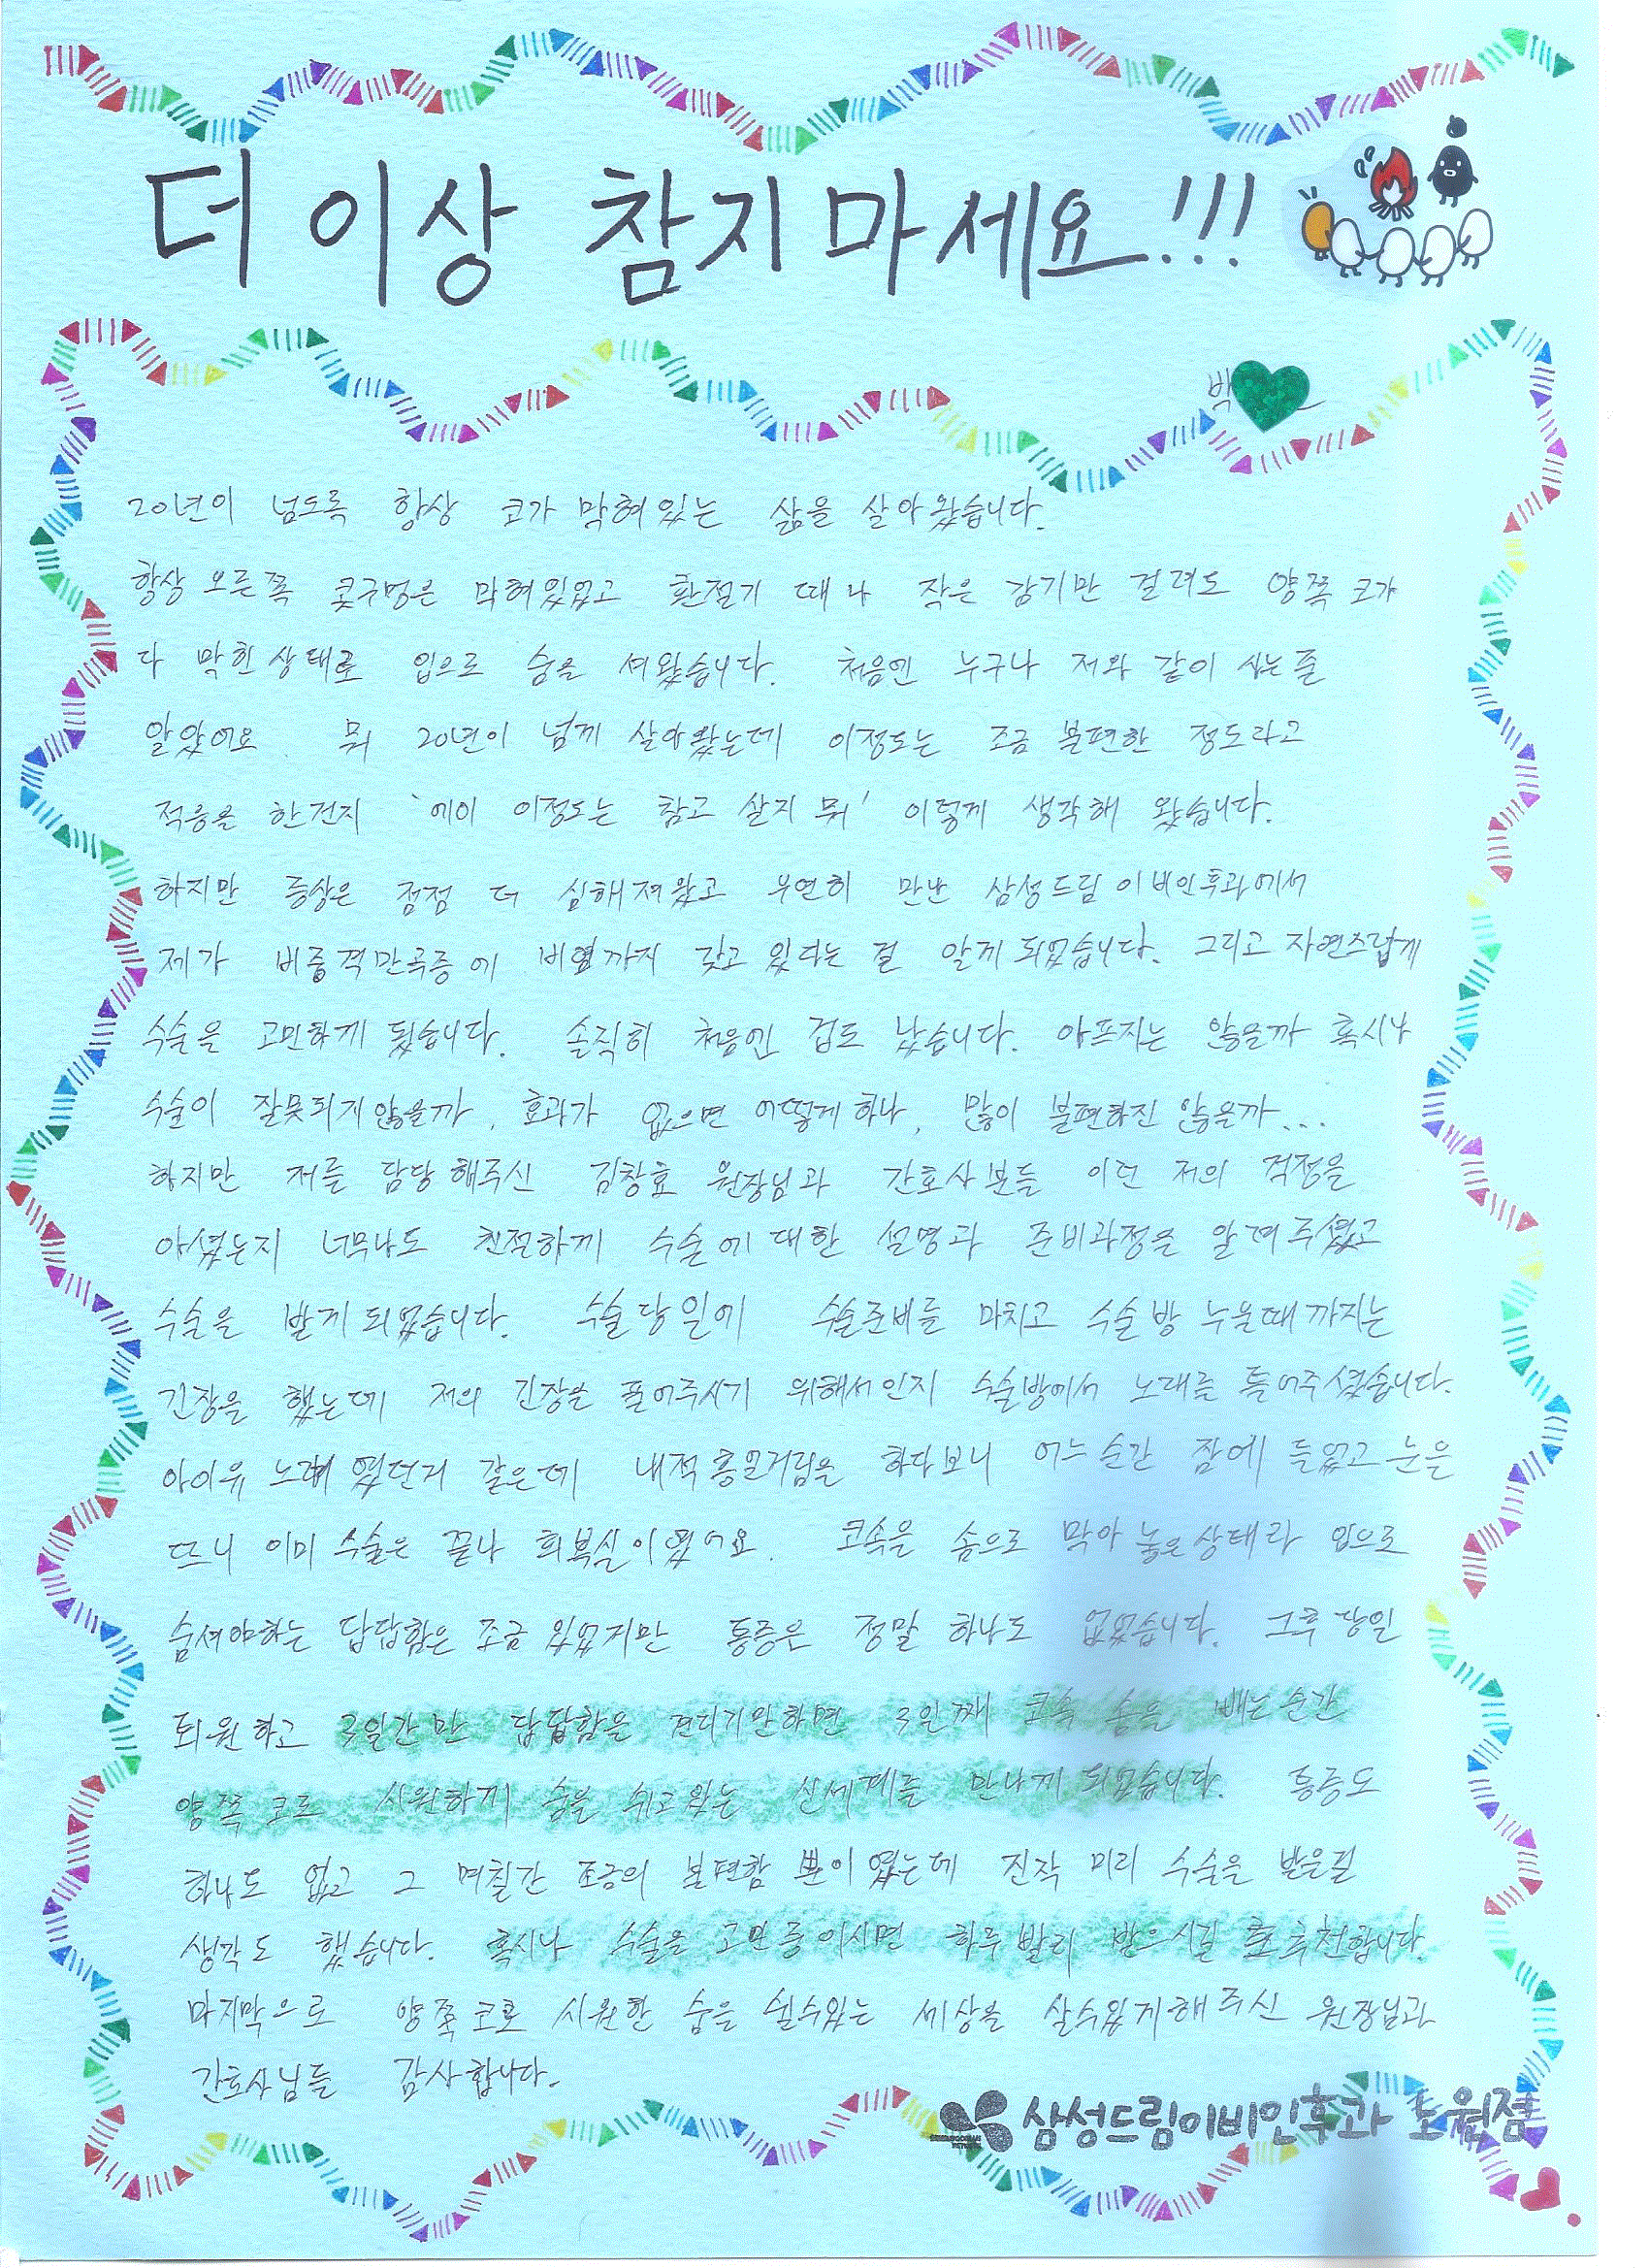 더 이상 참지마세요!!!
박
20년이 넘도록 항상 코가 막혀있는 삶을 살아왔습니다.
항상 오른쪽 콧구멍은 막혀있었고 환절기 때나 작은 감기만 걸려도 양쪽 코가
다 막힌상태로 입으로 숨을 셔왔습니다. 처음엔 누구나 저와 같이 사는줄
알았어요. 뭐 20년이 넘게 살아왔는데 이정도는 조금 불편한 정도라고
적응을 한건지 '에이 이정도는 참고 살지 뭐' 이렇게 생각해 왔습니다.
하지만 증상은 점점 더 심해져왔고 우연히 만난 삼성드림이비인후과에서
제가 비중격만곡증에 비염까지 갖고 있다는 걸 알게되었습니다. 그리고 자연스럽게
수술을 고민하게 됬습니다. 솔직히 처음엔 겁도 났습니다. 아프지는 않을까 혹시나
수술이 잘못되지않을까, 효과가 없으면 어떻게하나, 많이 불편하진 않을까...
하지만 저를 담당해주신 김창효 원장님과 간호사분들 이런 저의 걱정을
아셨는지 너무나도 친절하게 수술에 대한 설명과 준비과정을 알려주셨고
수술을 받게되었습니다. 수술당일에 수술준비를 마치고 수술방 누울때까지는
긴장을 했는데 저의 긴장을 풀어주시기 위해서인지 수술방에서 노래를 틀어주셨습니다.
아이유 노래였던거 같은데 내적흥얼거림을 하다보니 어느순간 잠에 들었고 눈을
뜨니 이미 수술은 끝나 회복실이였어요. 코속을 솜으로 막아 놓은상태라 입으로
숨셔야하는 답답함은 조금 있었지만 통증은 정말 하나도 없었습니다. 그후 당일
퇴원하고 3일간만 답답함을 견디기만하면 3일째 코속 솜을 빼는순간
양쪽 코로 시원하게 숨을 쉬고있는 신세계를 만나게되었습니다. 통증도
하나도 없고 그 며칠간 조금의 불편함 뿐이였는데 진작 미리 수술을 받을걸
생각도 했습니다. 혹시나 수술을 고민중이시면 하루빨리 받으시길 추천합니다.
마지막으로 양쪽코로 시원한 숨을 쉴수있는 세상을 살수있게해주신 원장님과
간호사님들 감사합니다.
삼성드림이비인후과 노원점